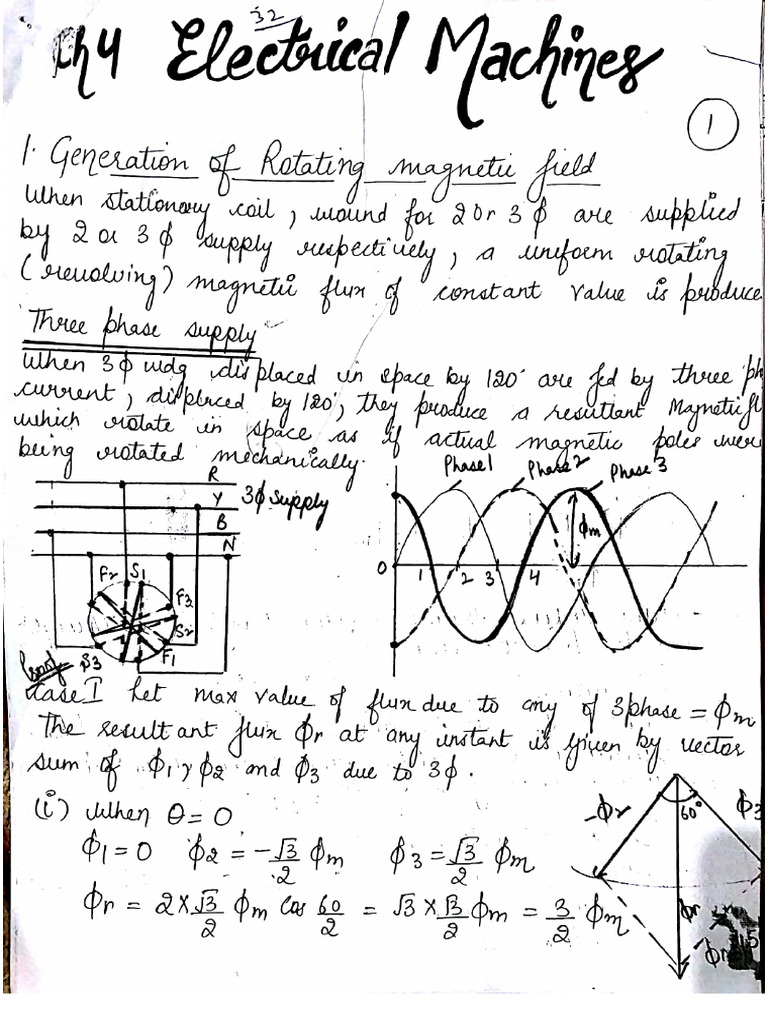 32
Ch 4 Electrical Machines
1
1. Generation of Rotating magnetic field
When stationary coil, wound for 2 or 3 ϕ are supplied
by 2 or 3 ϕ supply respectively, a uniform rotating
(revolving) magnetic flux of constant value is produce
Three phase supply
When 3ϕ wdg displaced in space by 120° are fed by three ph
current, displaced by 120°, they produce a resultant Magnetic fl
which rotate in space as if actual magnetic poles were
being rotated mechanically.
R
Y
B
N
3ϕ Supply
S1
F2
S2
F1
S3
Phase 1
Phase 2
Phase 3
ϕm
0 1 2 3 4
Proof
Case I Let max value of flux due to any of 3 phase = ϕm
The resultant flux ϕr at any instant is given by vector
sum of ϕ1, ϕ2 and ϕ3 due to 3ϕ.
(i) When θ = 0
ϕ1 = 0 ϕ2 = -√3/2 ϕm ϕ3 = √3/2 ϕm
ϕr = 2 × √3/2 ϕm cos 60/2 = √3 × √3/2 ϕm = 3/2 ϕm
-ϕ2
60°
ϕ3
ϕr